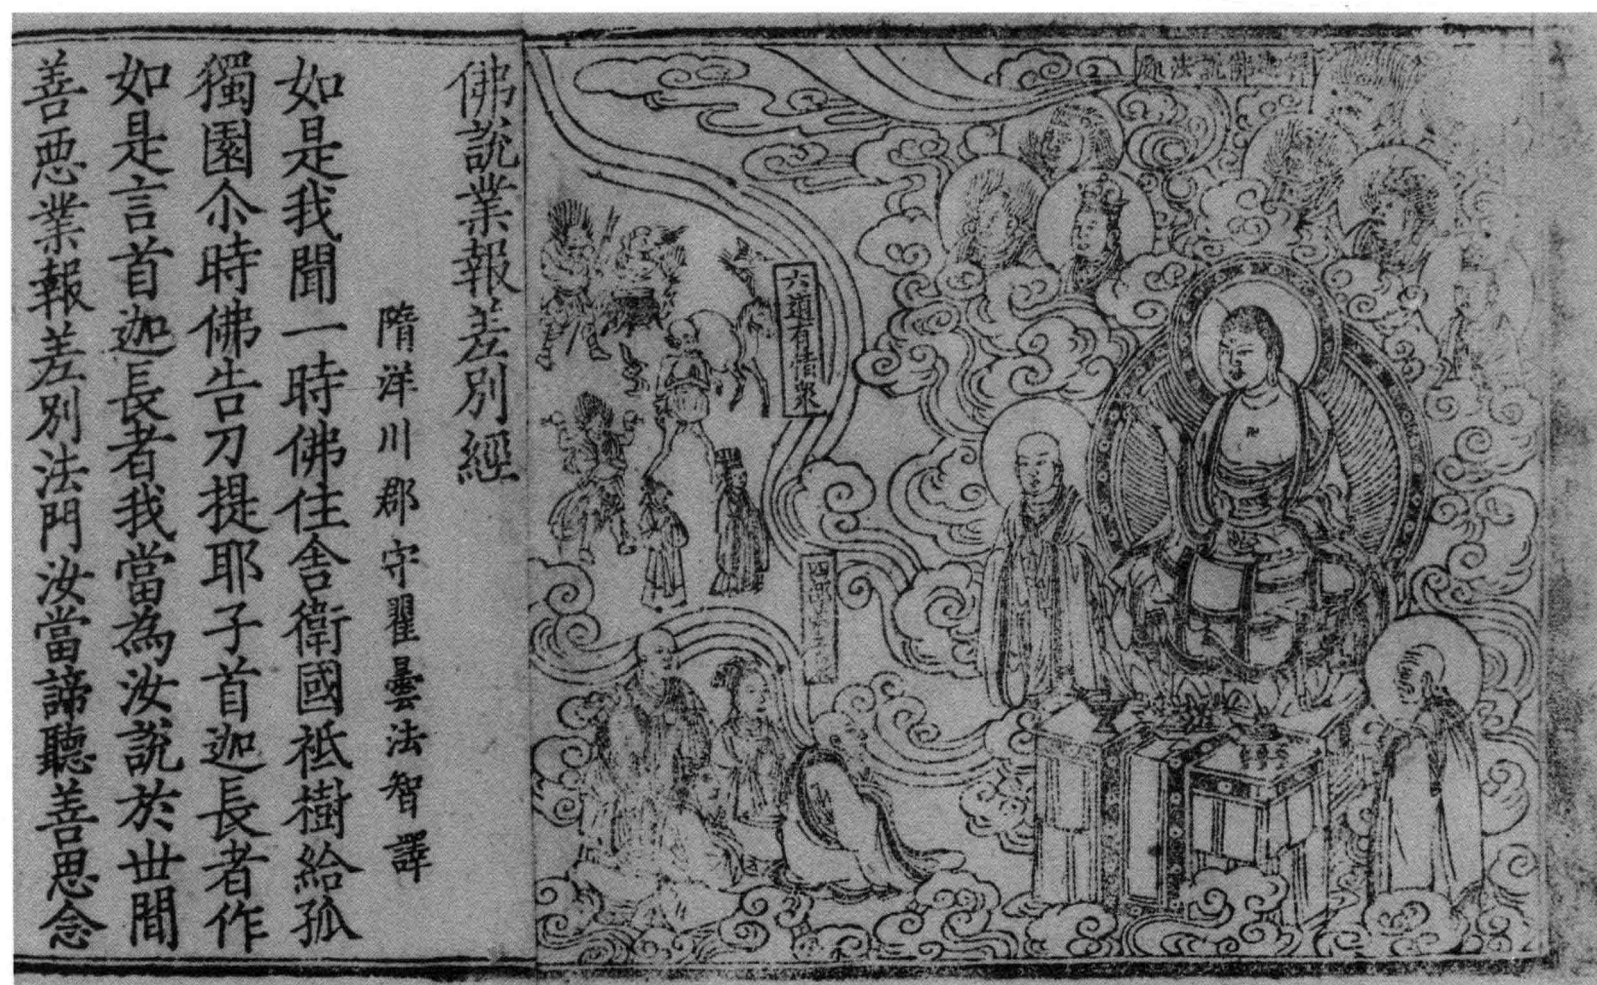 佛說法
六道有情衆
佛說業報差別經
隋洋川郡守瞿曇法智譯
如是我聞一時佛住舍衛國祇樹給孤
獨園尒時佛告刀提耶子首迦長者作
如是言首迦長者我當為汝說於世間
善悪業報差別法門汝當諦聽善思念